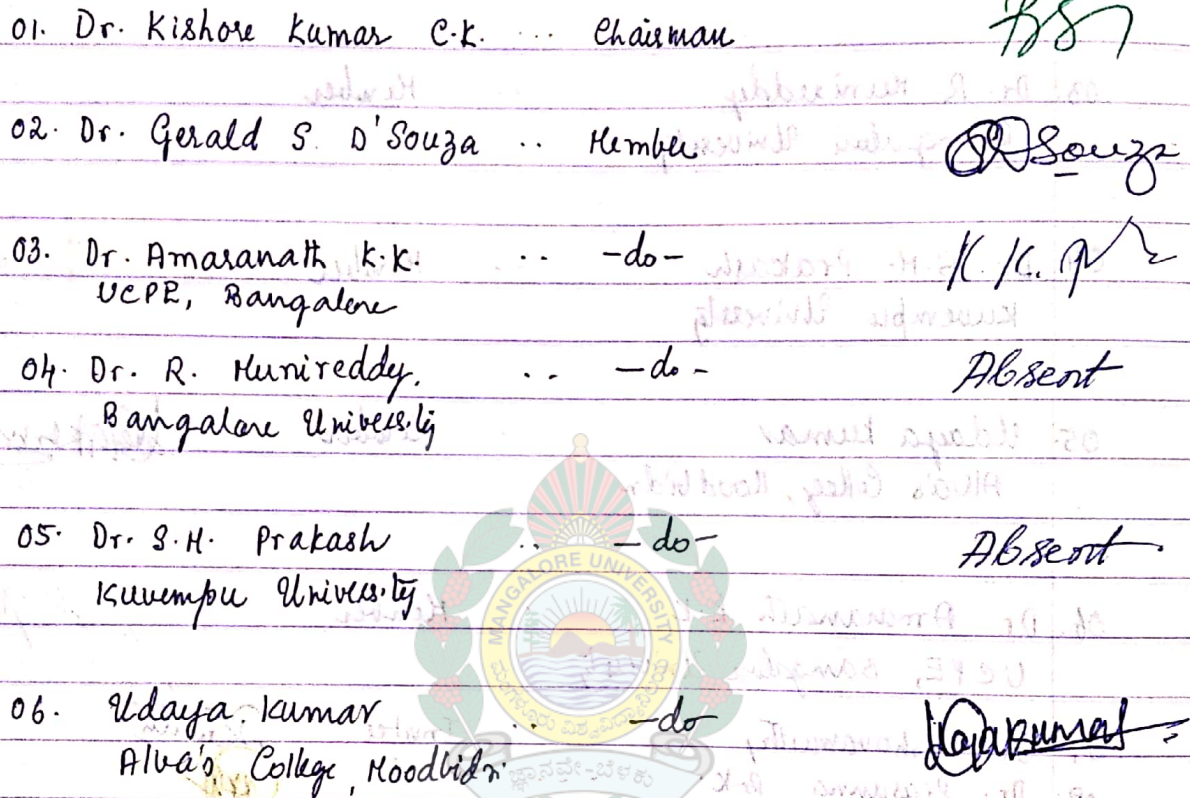 01. Dr. Kishore Kumar C.K. ... Chairman
02. Dr. Gerald S. D'Souza .. Member D'Souza
03. Dr. Amaranath K.K. .. -do- K.K.
UCPE, Bangalore
04. Dr. R. Munireddy, .. -do- Absent
Bangalore University
05. Dr. S.H. Prakash .. -do- Absent
Kuvempu University
MANGALORE UNIVERSITY
06. Udaya. Kumar .. -do-
Alva's College, Moodbidri
ಜ್ಞಾನವೇ-ಬೆಳಕು